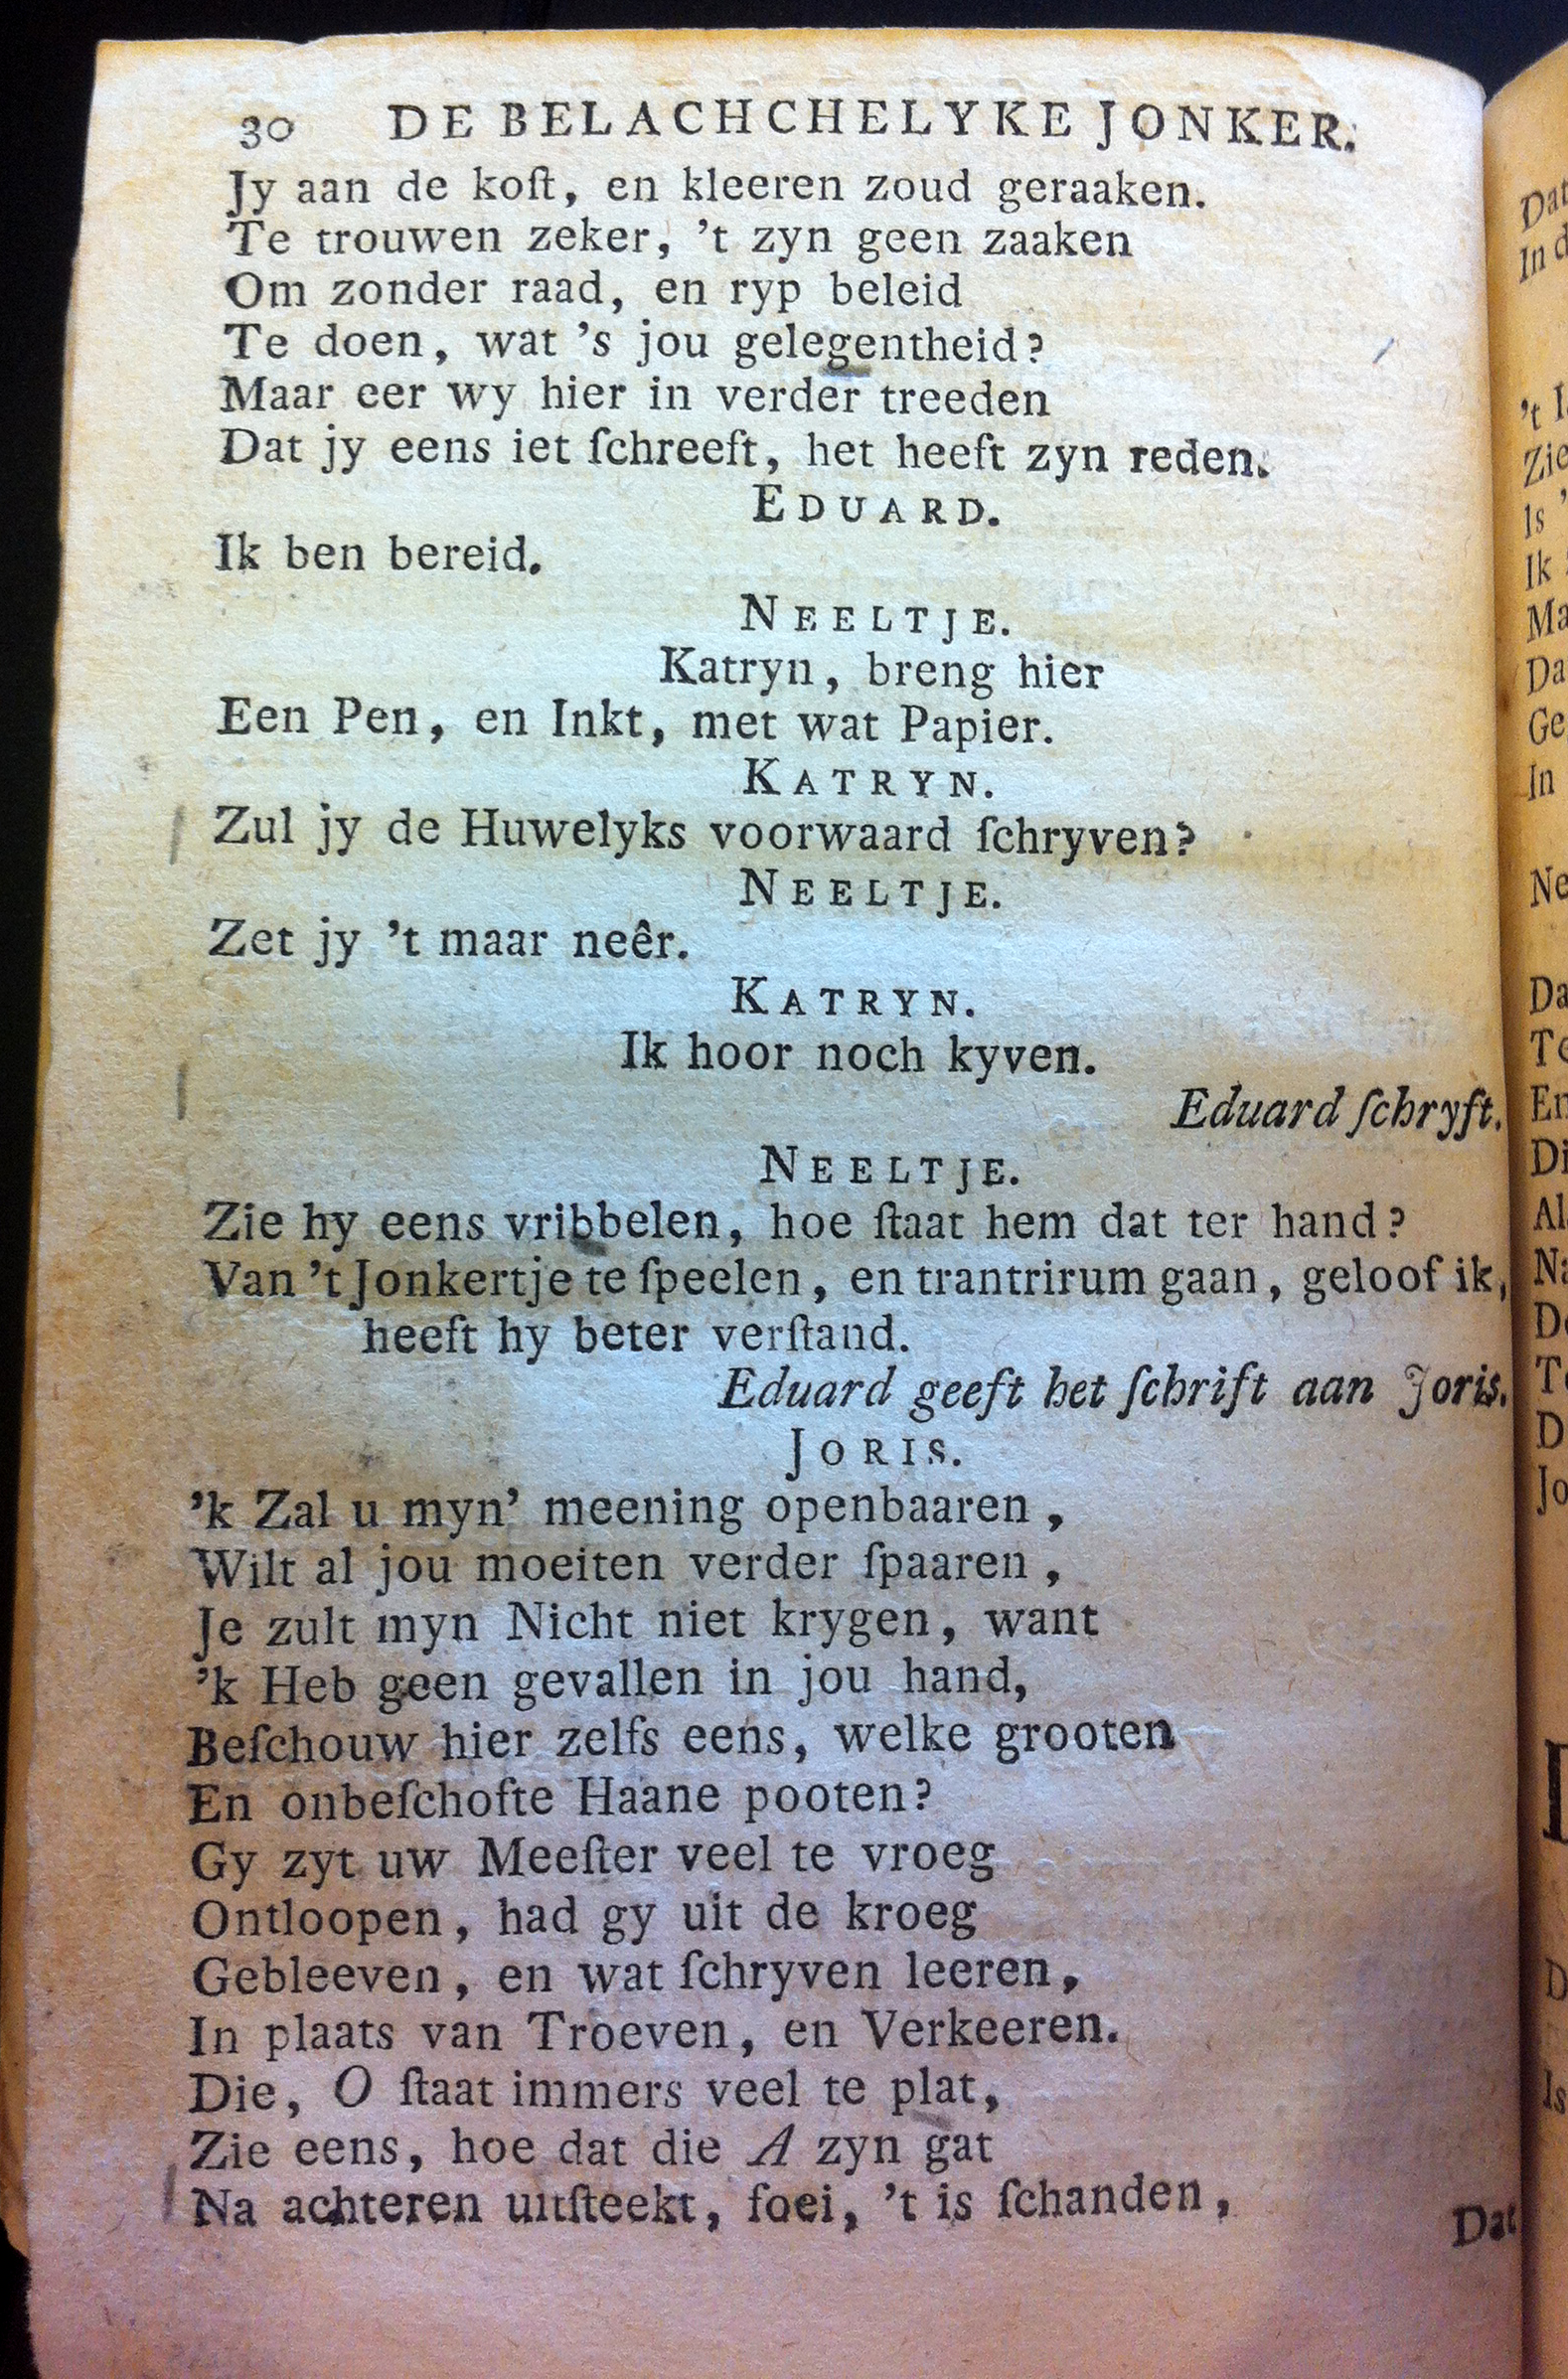 30 DE BELACHCHELYKE JONKER.
Jy aan de koſt, en kleeren zoud geraaken.
Te trouwen zeker, 't zyn geen zaaken
Om zonder raad, en ryp beleid
Te doen, wat 's jou gelegentheid?
Maar eer wy hier in verder treeden
Dat jy eens iet ſchreeft, het heeft zyn reden.
EDUARD.
Ik ben bereid.
NEELTJE.
Katryn, breng hier
Een Pen, en Inkt, met wat Papier.
KATRYN.
Zul jy de Huwelyks voorwaard ſchryven?
NEELTJE.
Zet jy 't maar neêr.
KATRYN.
Ik hoor noch kyven.
Eduard ſchryft.
NEELTJE.
Zie hy eens vribbelen, hoe ſtaat hem dat ter hand?
Van 't Jonkertje te ſpeelen, en trantrirum gaan, geloof ik,
heeft hy beter verſtand.
Eduard geeft het ſchrift aan Joris.
JORIS.
'k Zal u myn' meening openbaaren,
Wilt al jou moeiten verder ſpaaren,
Je zult myn Nicht niet krygen, want
'k Heb geen gevallen in jou hand,
Beſchouw hier zelfs eens, welke grooten
En onbeſchofte Haane pooten?
Gy zyt uw Meeſter veel te vroeg
Ontloopen, had gy uit de kroeg
Gebleeven, en wat ſchryven leeren,
In plaats van Troeven, en Verkeeren.
Die, O ſtaat immers veel te plat,
Zie eens, hoe dat die A zyn gat
Na achteren uitſteekt, foei, 't is ſchanden,
Dat